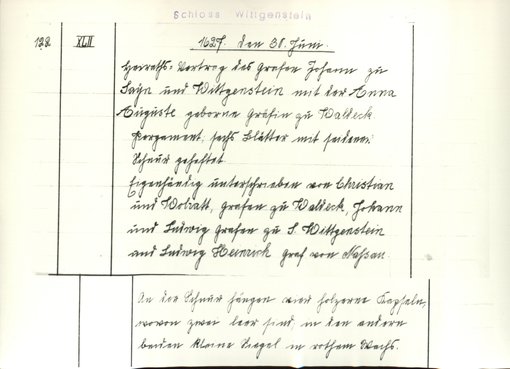 Schloss Wittgenstein
122 XLII 1627. den 30. Juni.
Heiraths-Vertrag des Grafen Johann zu
Sayn und Wittgenstein mit der Anna
Auguste geborne Gräfin zu Waldeck.
Pergament, sechs Blätter mit seidener
Schnur geheftet.
Eigenhändig unterschrieben von Christian
und Wolratt, Grafen zu Waldeck, Johann
und Ludwig Grafen zu S. Wittgenstein
und Ludwig Heinrich Graf von Nassau.
An der Schnur hängen vier holzerne Kapseln,
wovon zwei leer sind, in den andern
beiden kleine Siegel in rothem Wachs.